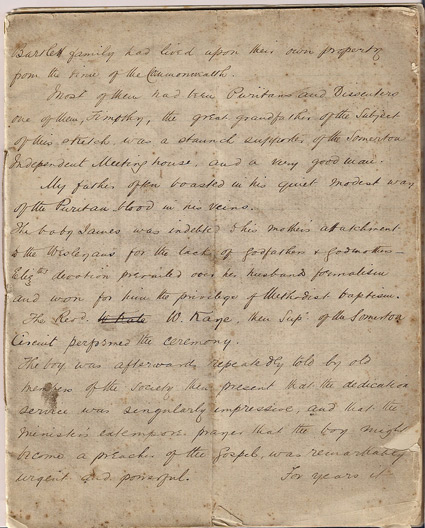 Bartlett family had lived upon their own property
from the time of the Commonwealth.
Most of them had been Puritans and Dissenters
one of them, Timothy, the great grandfather of the subject
of this sketch, was a staunch supporter of the Somerton
Independent Meeting house, and a very good man.
My father often boasted in his quiet modest way
of the Puritan blood in his veins.
The baby James was indebted to his mothers attachment
to the Wesleyans for the lack of godfathers & godmothers—
Eliz:ths devotion prevailed over her husbands formalism
and won for him the privilege of Methodist baptism.
The Revd. W. Kaye, then Supt. of the Somerton
Circuit performed the ceremony.
The boy was afterwards repeatedly told by old
members of the Society then present that the dedication
service was singularly impressive, and that the
ministers extempore prayer that the boy might
become a preacher of the Gospel, was remarkably
urgent and powerful. For years it